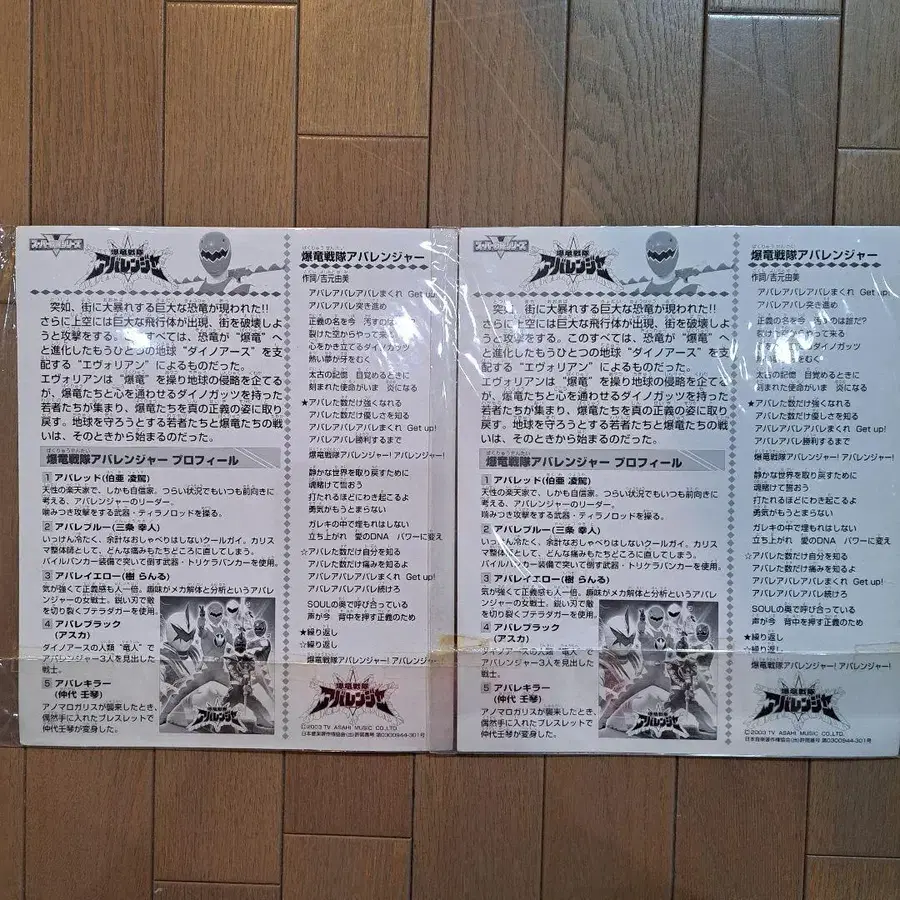 スーパー戦隊シリーズ
爆竜戦隊
アバレンジャー
突如、街に大暴れする巨大な恐竜が現われた!!
さらに上空には巨大な飛行体が出現、街を破壊しよ
うと攻撃をする。このすべては、恐竜が“爆竜”へ
と進化したもうひとつの地球“ダイノアース”を支
配する“エヴォリアン”によるものだった。
エヴォリアンは“爆竜”を操り地球の侵略を企てる
が、爆竜たちと心を通わせるダイノガッツを持った
若者たちが集まり、爆竜たちを真の正義の姿に取り
戻す。地球を守ろうとする若者たちと爆竜たちの戦
いは、そのときから始まるのだった。
ばくりゅうせんたい
爆竜戦隊アバレンジャー プロフィール
1 アバレッド(伯亜 凌駕)
天性の楽天家で、しかも自信家。つらい状況でもいつも前向きに
考える、アバレンジャーのリーダー。
噛みつき攻撃をする武器・ティラノロッドを操る。
2 アバレブルー(三条 幸人)
いっけん冷たく、余計なおしゃべりはしないクールガイ。カリス
マ整体師として、どんな痛みもたちどころに直してしまう。
パイルバンカー装備で突いて倒す武器・トリケラバンカーを使用。
3 アバレイエロー(樹 らんる)
気が強くて正義感も人一倍。趣味がメカ解体と分析というアバレ
ンジャーの女戦士。鋭い刃で敵
を切り裂くプテラダガーを使用。
4 アバレブラック
(アスカ)
ダイノアースの人類“竜人”で
アバレンジャー3人を見出した
戦士。
5 アバレキラー
(仲代 壬琴)
アノマロガリスが襲来したとき、
偶然手に入れたブレスレットで
仲代壬琴が変身した。
爆竜戦隊
アバレンジャー
ばくりゅうせんたい
爆竜戦隊アバレンジャー
作詞/吉元由美
アバレアバレアバレまくれ Get up!
アバレアバレ突き進め
正義の名を今 汚すのは誰だ?
裂けた空からやって来る
心をかき立てるダイノガッツ
熱い夢が牙をむく
太古の記憶 目覚めるときに
刻まれた使命がいま 炎になる
★アバレた数だけ強くなれる
アバレた数だけ優しさを知る
アバレアバレアバレまくれ Get up!
アバレアバレ勝利するまで
爆竜戦隊アバレンジャー! アバレンジャー!
静かな世界を取り戻すために
魂賭けて誓おう
打たれるほどにわき起こるよ
勇気がもうとまらない
ガレキの中で埋もれはしない
立ち上がれ 愛のDNA パワーに変え
☆アバレた数だけ自分を知る
アバレた数だけ痛みを知るよ
アバレアバレアバレまくれ Get up!
アバレアバレアバレ続けろ
SOULの奥で呼び合っている
声が今 背中を押す正義のため
★繰り返し
☆繰り返し
爆竜戦隊アバレンジャー! アバレンジャー!
爆竜戦隊
アバレンジャー
Ⓒ2003 TV ASAHI MUSIC CO.,LTD.
日本音楽著作権協会(出)許諾番号 第0300944-301号
スーパー戦隊シリーズ
爆竜戦隊
アバレンジャー
突如、街に大暴れする巨大な恐竜が現われた!!
さらに上空には巨大な飛行体が出現、街を破壊しよ
うと攻撃をする。このすべては、恐竜が“爆竜”へ
と進化したもうひとつの地球“ダイノアース”を支
配する“エヴォリアン”によるものだった。
エヴォリアンは“爆竜”を操り地球の侵略を企てる
が、爆竜たちと心を通わせるダイノガッツを持った
若者たちが集まり、爆竜たちを真の正義の姿に取り
戻す。地球を守ろうとする若者たちと爆竜たちの戦
いは、そのときから始まるのだった。
ばくりゅうせんたい
爆竜戦隊アバレンジャー プロフィール
1 アバレッド(伯亜 凌駕)
天性の楽天家で、しかも自信家。つらい状況でもいつも前向きに
考える、アバレンジャーのリーダー。
噛みつき攻撃をする武器・ティラノロッドを操る。
2 アバレブルー(三条 幸人)
いっけん冷たく、余計なおしゃべりはしないクールガイ。カリス
マ整体師として、どんな痛みもたちどころに直してしまう。
パイルバンカー装備で突いて倒す武器・トリケラバンカーを使用。
3 アバレイエロー(樹 らんる)
気が強くて正義感も人一倍。趣味がメカ解体と分析というアバレ
ンジャーの女戦士。鋭い刃で敵
を切り裂くプテラダガーを使用。
4 アバレブラック
(アスカ)
ダイノアースの人類“竜人”で
アバレンジャー3人を見出した
戦士。
5 アバレキラー
(仲代 壬琴)
アノマロガリスが襲来したとき、
偶然手に入れたブレスレットで
仲代壬琴が変身した。
爆竜戦隊
アバレンジャー
ばくりゅうせんたい
爆竜戦隊アバレンジャー
作詞/吉元由美
アバレアバレアバレまくれ Get up!
アバレアバレ突き進め
正義の名を今 汚すのは誰だ?
裂けた空からやって来る
ダイノガッツ
牙をむく
太古の記憶 目覚めるときに
刻まれた使命がいま 炎になる
★アバレた数だけ強くなれる
アバレた数だけ優しさを知る
アバレアバレアバレまくれ Get up!
アバレアバレ勝利するまで
爆竜戦隊アバレンジャー! アバレンジャー!
静かな世界を取り戻すために
魂賭けて誓おう
打たれるほどにわき起こるよ
勇気がもうとまらない
ガレキの中で埋もれはしない
立ち上がれ 愛のDNA パワーに変え
☆アバレた数だけ自分を知る
アバレた数だけ痛みを知るよ
アバレアバレアバレまくれ Get up!
アバレアバレアバレ続けろ
SOULの奥で呼び合っている
声が今 背中を押す正義のため
★繰り返し
☆繰り返し
爆竜戦隊アバレンジャー! アバレンジャー!
爆竜戦隊
アバレンジャー
Ⓒ2003 TV ASAHI MUSIC CO.,LTD.
日本音楽著作権協会(出)許諾番号 第0300944-301号